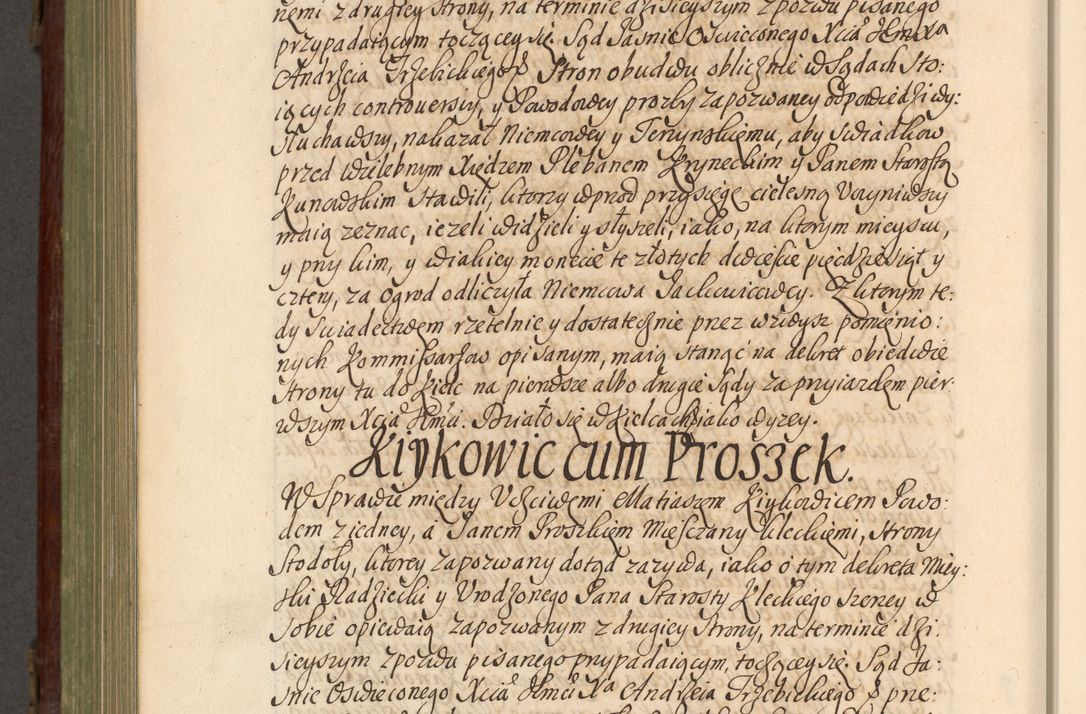 nemi z drugiey strony, na terminie dzisieyszym z pozwu pisanego
przypadaiącym toczącey się. Sąd Jasnie Oswieconego Xcia Jmci Xa
Andrzeia Trzebickiego &c Stron obudwu oblicznie w Sądach sto:
iących controversiy, y Powodowey prozby zapozwaney odpowiedzi wy:
słuchawszy, nakazał Niemcowey y Tenynskiemu, aby swiadkow
przed wielebnym Xiędzem Plebanem Kryneckim y Panem Starostą
Kunowskim stawili, ktorzy wprod przysięgę cielesną uczyniwszy
maią zeznac, iezeli widzieli y słyszeli, iako, na ktorym mieyscu,
y przy kim, y wiakiey monecie te złotych dwiescie pięcdziesiąt y
cztery, za ogrod odliczyła Niemcowa Jackowicowey. Z ktorym te:
dy swiadectwem rzetelnie y dostatecznie przez wzwysz pomienio:
nych Kommissarzow opisanym, maią stanąć na dekret obiedwie
strony tu do Kielc na pierwsze albo drugie sądy za przyiazdem pier:
wszym Xcia Jmci. Działo się w Kielcach iako wyzey.
Kiykowic cum Proszek.
W Sprawie między Uczciwemi Matiaszem Kiykowicem Powo:
dem z iedney, a Janem Proszkiem Miesczany Kleckiemi, strony
Stodoły, ktorey zapozwany dotąd zazywa, iako o tym dekreta Miey:
ski Radziecki y Urodzonego Pana Starosty Kleckiego szerzey w
sobie opiewaią zapozwanym z drugiey strony, na terminie dzi:
sieyszym z pozwu pisanego przypadaiącym, toczącey się. Sąd Ja:
snie Oswieconego Xcia Jmci Xa Andrzeia Trzebickiego &c prze: